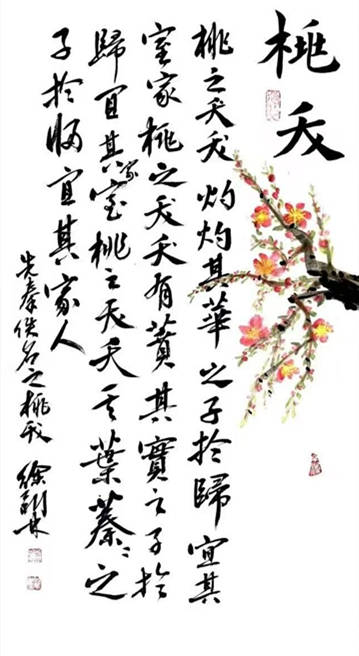 桃夭
桃之夭夭灼灼其華之子於歸宜其
室家桃之夭夭有蕡其實之子於
歸宜其家室桃之夭夭其葉蓁〻之
子於歸宜其家人
先秦佚名之桃夭 徐